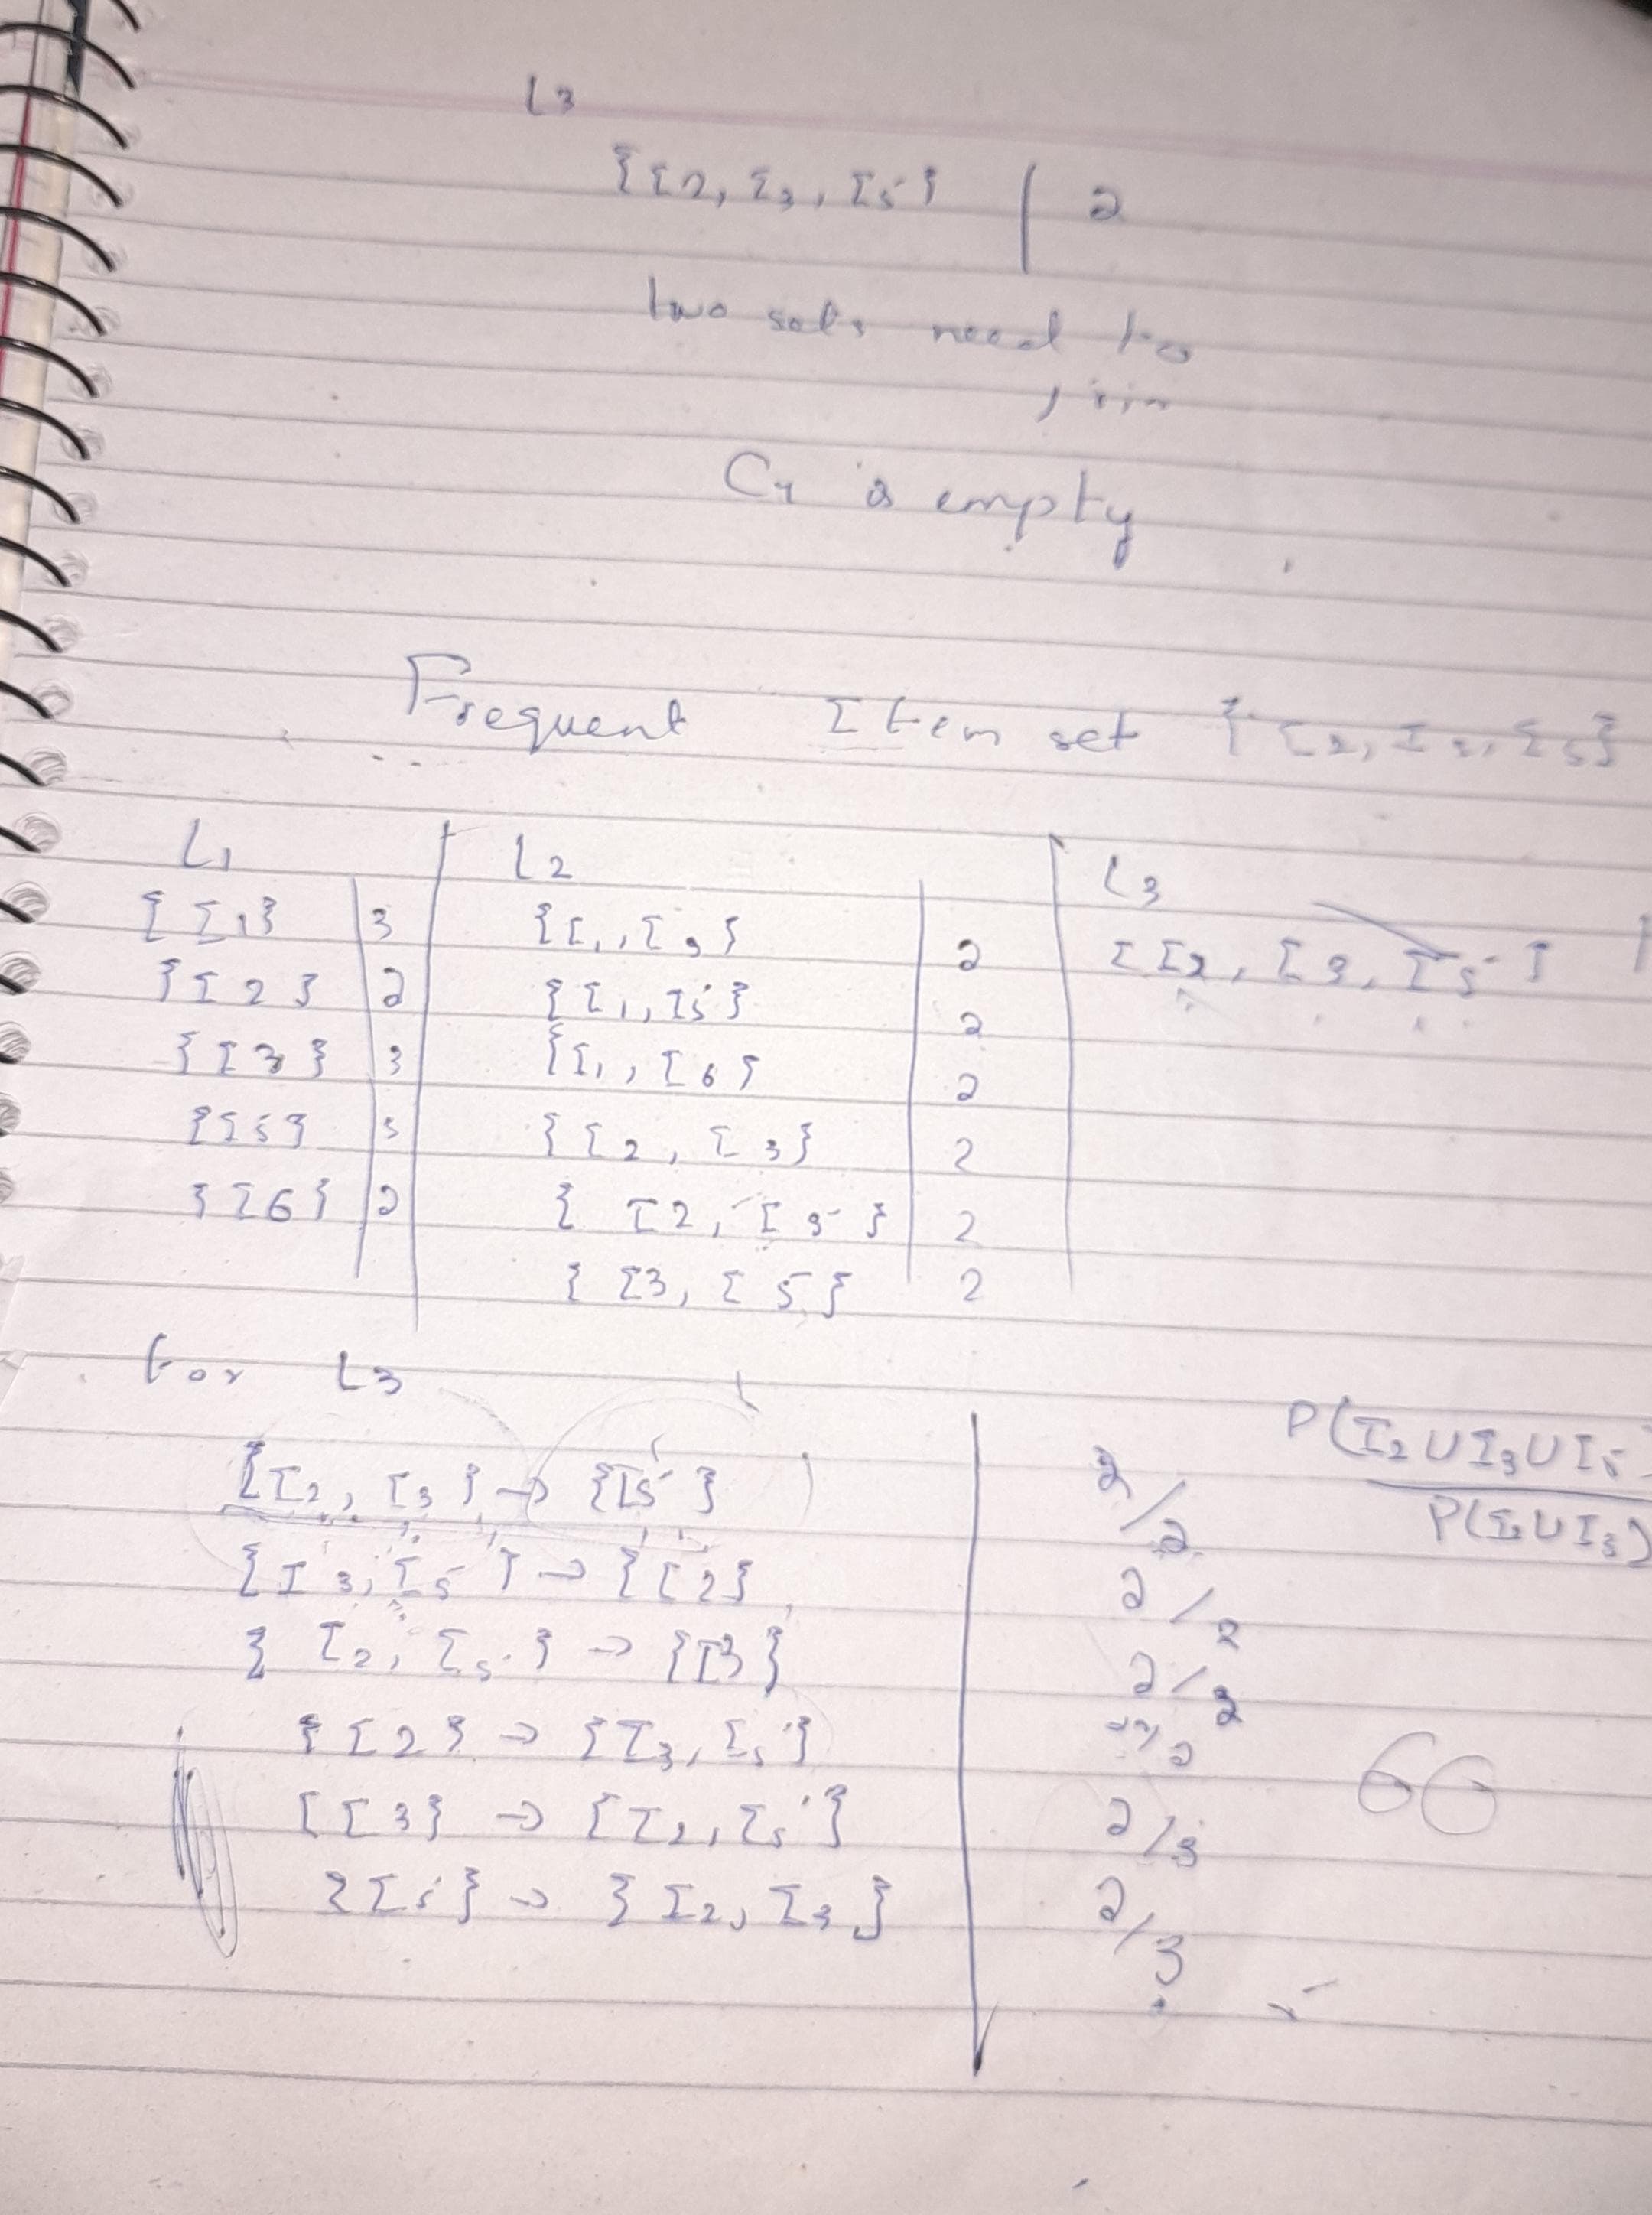 L3
{I2, I3, I5} | 2
two sets need to
join
C4 is empty
Frequent Item set {I2, I3, I5}
L1 | L2 | L3
{I1} | 3 | {I1, I3} | 2 | {I2, I3, I5} |
{I2} | 2 | {I1, I5} | 2
{I3} | 3 | {I1, I6} | 2
{I5} | 3 | {I2, I3} | 2
{I6} | 2 | {I2, I5} | 2
{I3, I5} 2
For L3
{I2, I3} → {I5} | 2/2 P(I2 U I3 U I5) / P(I2 U I3)
{I3, I5} → {I2} | 2/2
{I2, I5} → {I3} | 2/2
{I2} → {I3, I5} | 2/2
{I3} → {I2, I5} | 2/3 60
{I5} → {I2, I3} | 2/3